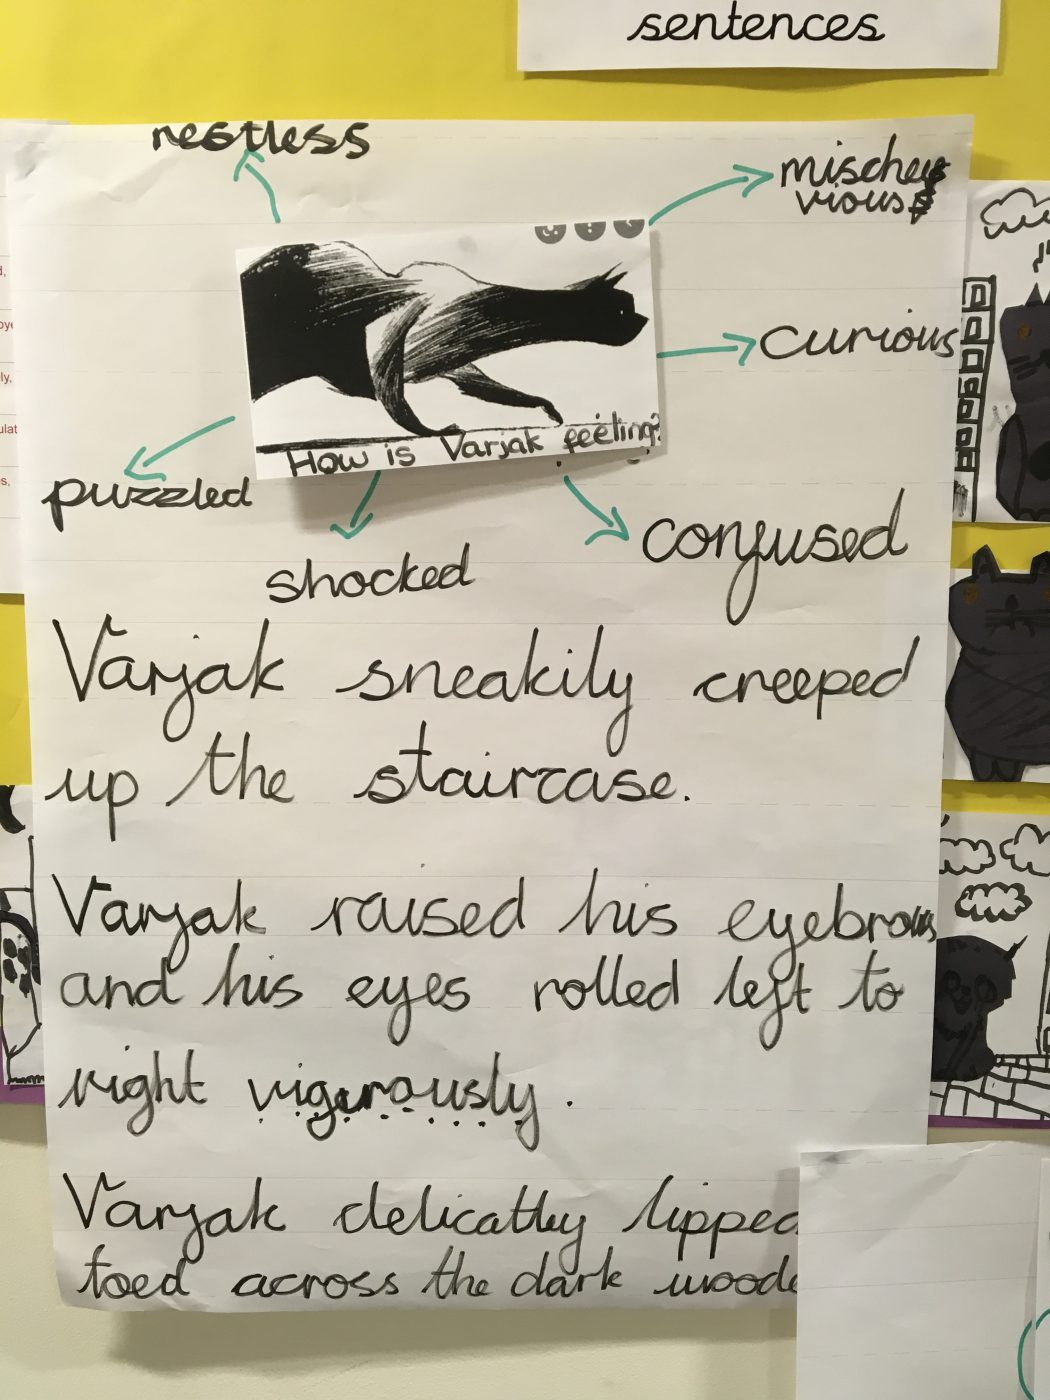 sentences
restless
mischey
vious
curious
How is Varjak feeling?
puzzled
shocked
confused
Varjak sneakily creeped
up the staircase.
Varjak raised his eyebrows
and his eyes rolled left to
right vigurously.
Varjak delicatley tipped
toed across the dark woode